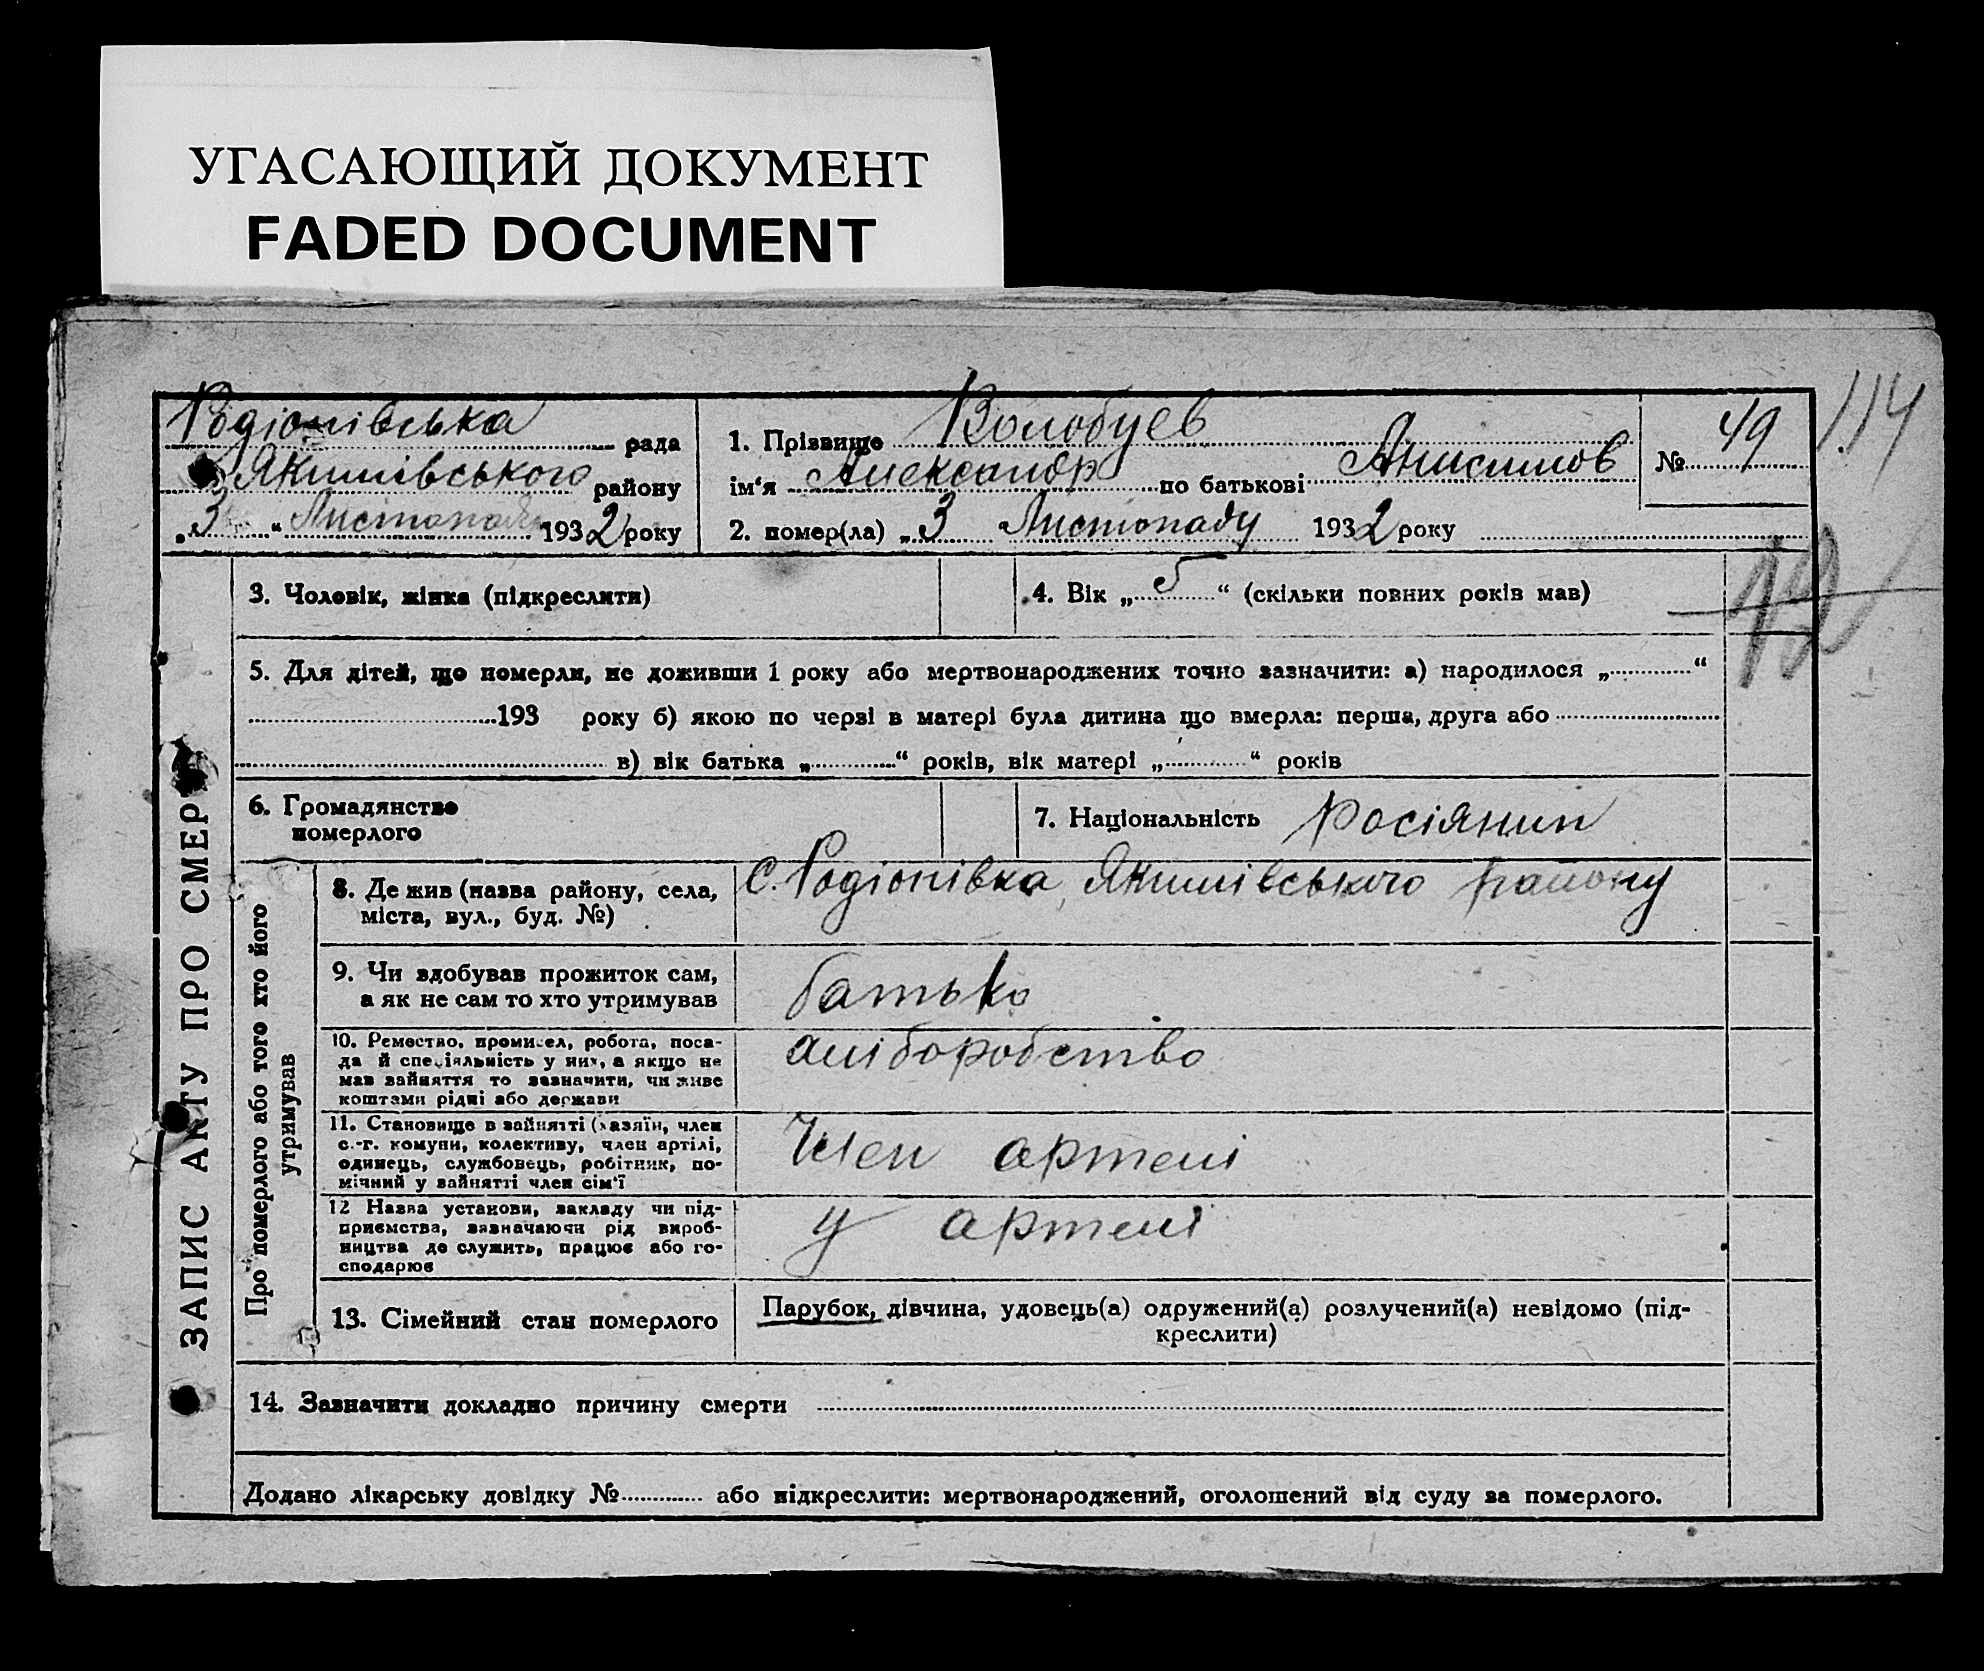 УГАСАЮЩИЙ ДОКУМЕНТ
FADED DOCUMENT
Родіонівська рада
Якимівського району
„3“ Листопада 1932 року
1. Прізвище Волобуев
ім‘я Александр по батькові Анисимов
2. помер(ла) „3 Листопаду 1932 року
№ 49
114
12
ЗАПИС АКТУ ПРО СМЕР
3. Чоловік, жінка (підкреслити)
4. Вік „5“ (скільки повних років мав)
5. Для дітей, що померли, не доживши 1 року або мертвонароджених точно зазначити: а) народилося „ “
193 року б) якою по черзі в матері була дитина що вмерла: перша, друга або
в) вік батька „ “ років, вік матері „ “ років
6. Громадянство
померлого
7. Національність Росіянин
Про померлого або того хто його
утримував
8. Де жив (назва району, села,
міста, вул., буд. №)
с. Родіонівка, Якимівського району
9. Чи здобував прожиток сам,
а як не сам то хто утримував
батько
10. Ремество, промисел, робота, поса-
да й спеціяльність у них, а якщо не
мав зайняття то зазначити, чи живе
коштами рідні або держави
хліборобство
11. Становище в зайнятті (хазяїн, член
с.-г. комуни, колективу, член артілі,
одинець, службовець, робітник, по-
мічний у зайнятті член сім'ї
Член артелі
12 Назва установи, закладу чи під-
приємства, зазначаючи рід вироб-
ництва де служить, працює або го-
сподарює
у артелі
13. Сімейний стан померлого
Парубок, дівчина, удовець(а) одружений(а) розлучений(а) невідомо (під-
креслити)
14. Зазначити докладно причину смерти
Додано лікарську довідку № або підкреслити: мертвонароджений, оголошений від суду за померлого.